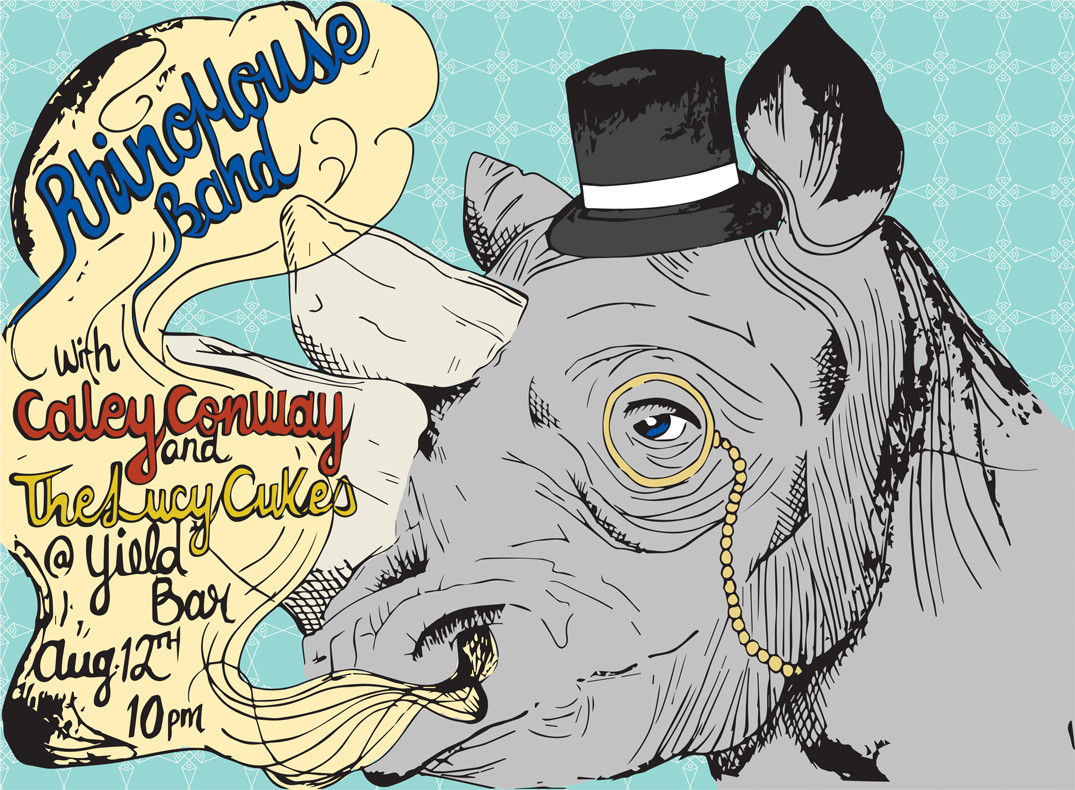 RhinoHouse
Band
with
Caley Conway
and
The Lucy Cukes
@ Yield
Bar
Aug. 12TH
10pm